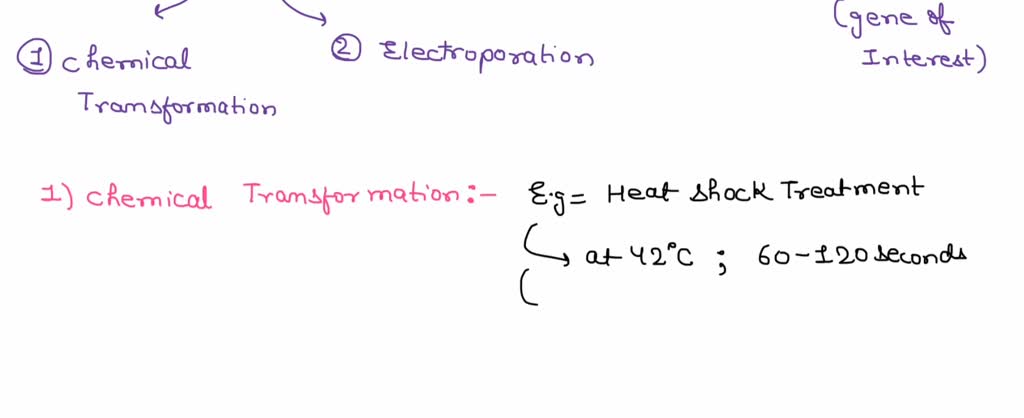 (gene of
Interest)
① chemical
Transformation
② Electroporation
1) chemical Transformation:- E.g = Heat shock Treatment
at 42°C ; 60-120 seconds
(